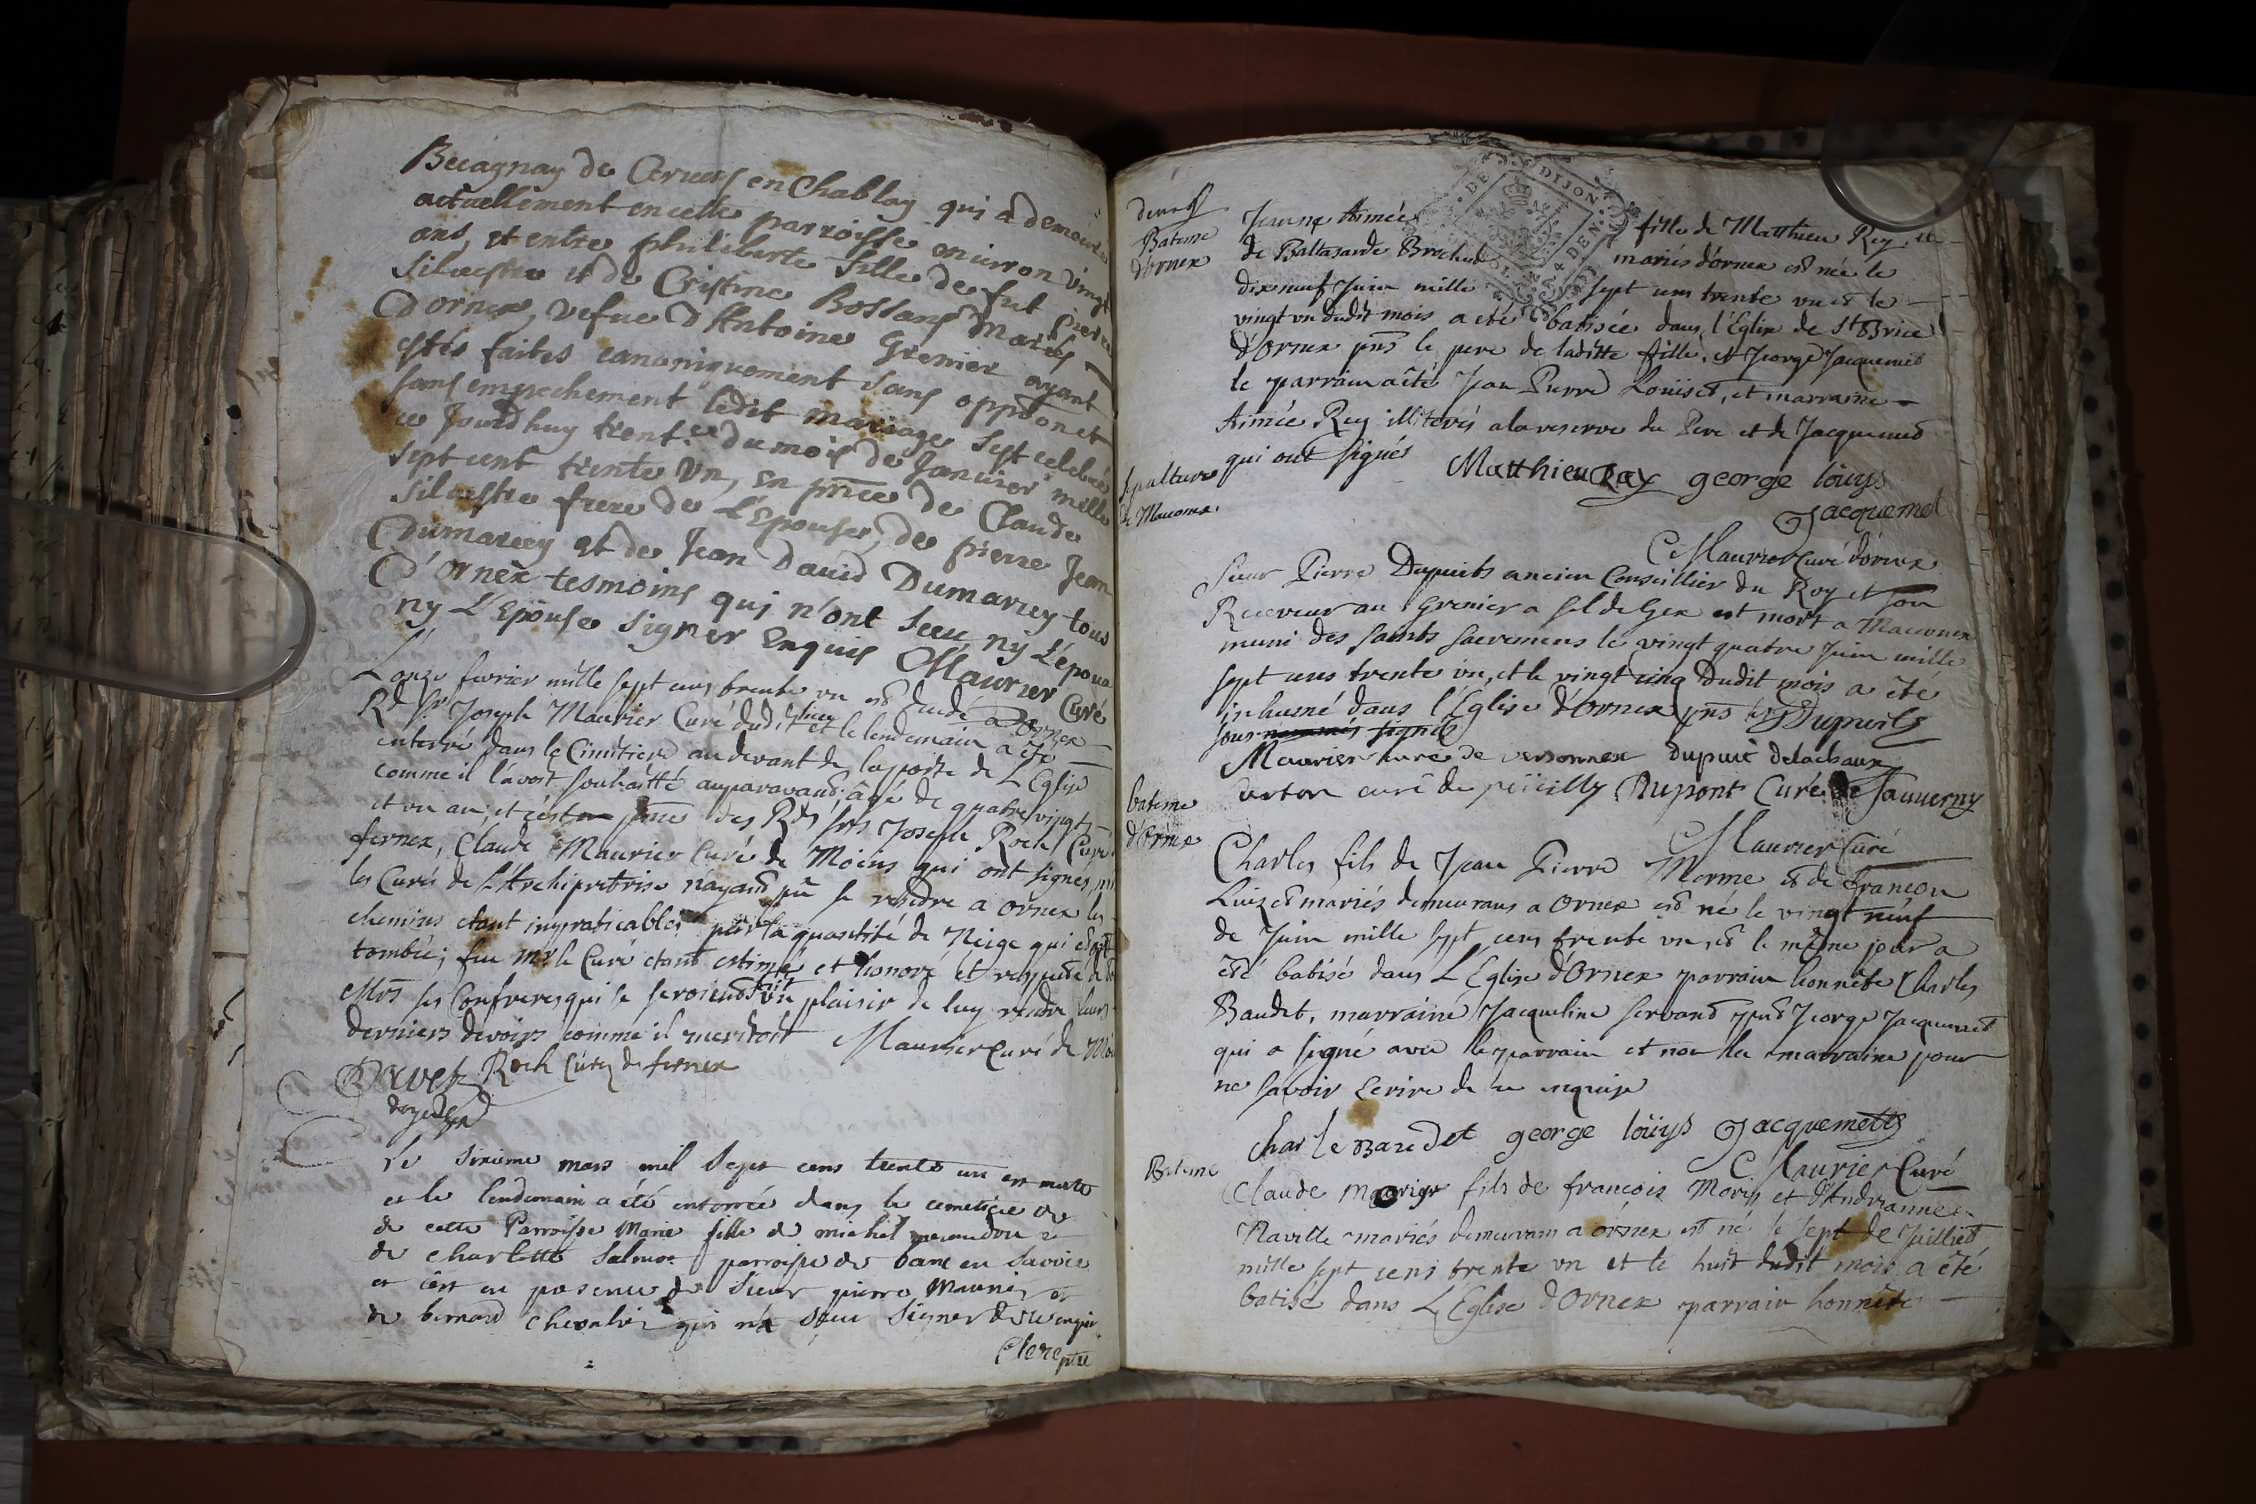 Becagnay de Cervens en Chablay qui a demeuré
actuellement en cette parroisse environ vingt
ans, et entre philiberte fille de fut pierre
Silvestre et de Cristine Bossans Mariés
D'ornex, vefue d'Antoine Grenier ayant
estés faites canoniquement sans oppoôn et
sans empechement ledit mariage s'est celebré
ce Jourdhuy trent.e du mois de Janvier mille
sept cent trente un, en pnce de Claude
Silvestre frere de L'Epouse, de pierre Jean
Dumarcey et de Jean David Dumarcey tous
D'ornex tesmoins qui n'ont sceu ny L'epoux
ny L'Epouse signer Enquis Maurier Curé
L'onze fevrier mille sept cens trente un est decedé a Ornex
Rd Sr Joseph Maurier Curé dudit lieu et le lendemain a été
enterré dans le Cimitiere au devant de la porte de L'Eglise
comme il l'avoit souhaitté auparavand, âgé de quatre vingt
et un an; et c'est en pnce des Rds Srs Joseph Roch Curé
fernex, Claude Maurier Curé de Moëns qui ont signés,
les Curés de l'Archipretrise n'ayand pû se rendre a ornex les
chemins etant inpraticables par la quantité de Neige qui
tombée; feu mr le Curé etant estimé et honoré et respecté de
Mrs ses Confreres qui se seroiend fait plaisir de luy rendre leurs
derniers devoirs comme il meritoit Maurier Curé de
Roch Curé de fernex
doyen
Le sixieme mars mil sept cens trente un est morte
et le lendemain a été enterrée dans le cemetiere
de cette Parroisse Marie fille de michel
de charlotte Salmon parroisse de en Savoie
et c'est en presence de Sieur pierre Maurier et
de bernard chevalier qui n'a sceu signer de ce enquis
Clerc ptre
DE DIJON
4 DEN
Bateme
d'ornex
Jeanne Aimée fille de Matthieu Rey, et
de Baltasarde Brochud mariés d'ornex est née le
dixneuf Juin mille sept cens trente un et le
vingt un dudit mois a eté batisée dans l'Eglise de St Brice
d'Ornex pns le pere de laditte fille, et George Jacquemed
le parrain a eté Jean Pierre Loüised, et marraine
Aimée Rey illiterés a la reserve du Pere et de Jacquemed
qui ont signés Matthieu Ray george loüys
Jacquemet
C Maurier Curé d'ornex
Sepulture
de Maconex.
Sieur Pierre Dupuits ancien Conseillier du Roy et son
Receveur au Grenier a sel de Gex est mort a Maconnex
muni des saints sacremens le vingt quatre Juin mille
sept cens trente un, et le vingt cinq dudit mois a été
inhumé dans l'Eglise d'Ornex pns Dupuits
sousnommés signés
Maurier curé de versonnex dupuit delachaux
curé de Dupont Curé de Sauverny
C Maurier Curé
bateme
d'ornex
Charles fils de Jean Pierre Merme et de francon
mariés demeurans a Ornex est né le vingt neuf
de Juin mille sept cens trente un, et le même jour a
été batisé dans L'Eglise d'Ornex parrain honnête Charles
Baudet, marraine Jacqueline Servand pns George Jacquemed
qui a signé avec le parrain et non la marraine pour
ne savoir Ecrire de ce enquise
charle Baudet george loüys Jacquemetts
C Maurier Curé
Bateme
Claude fils de francois Moris et d'Andrianne
Naville mariés demeurans a ornex est né le sept de Juillet
mille sept cens trente un et le huit dudit mois a été
batisé dans L'Eglise d'Ornex parrain honnête